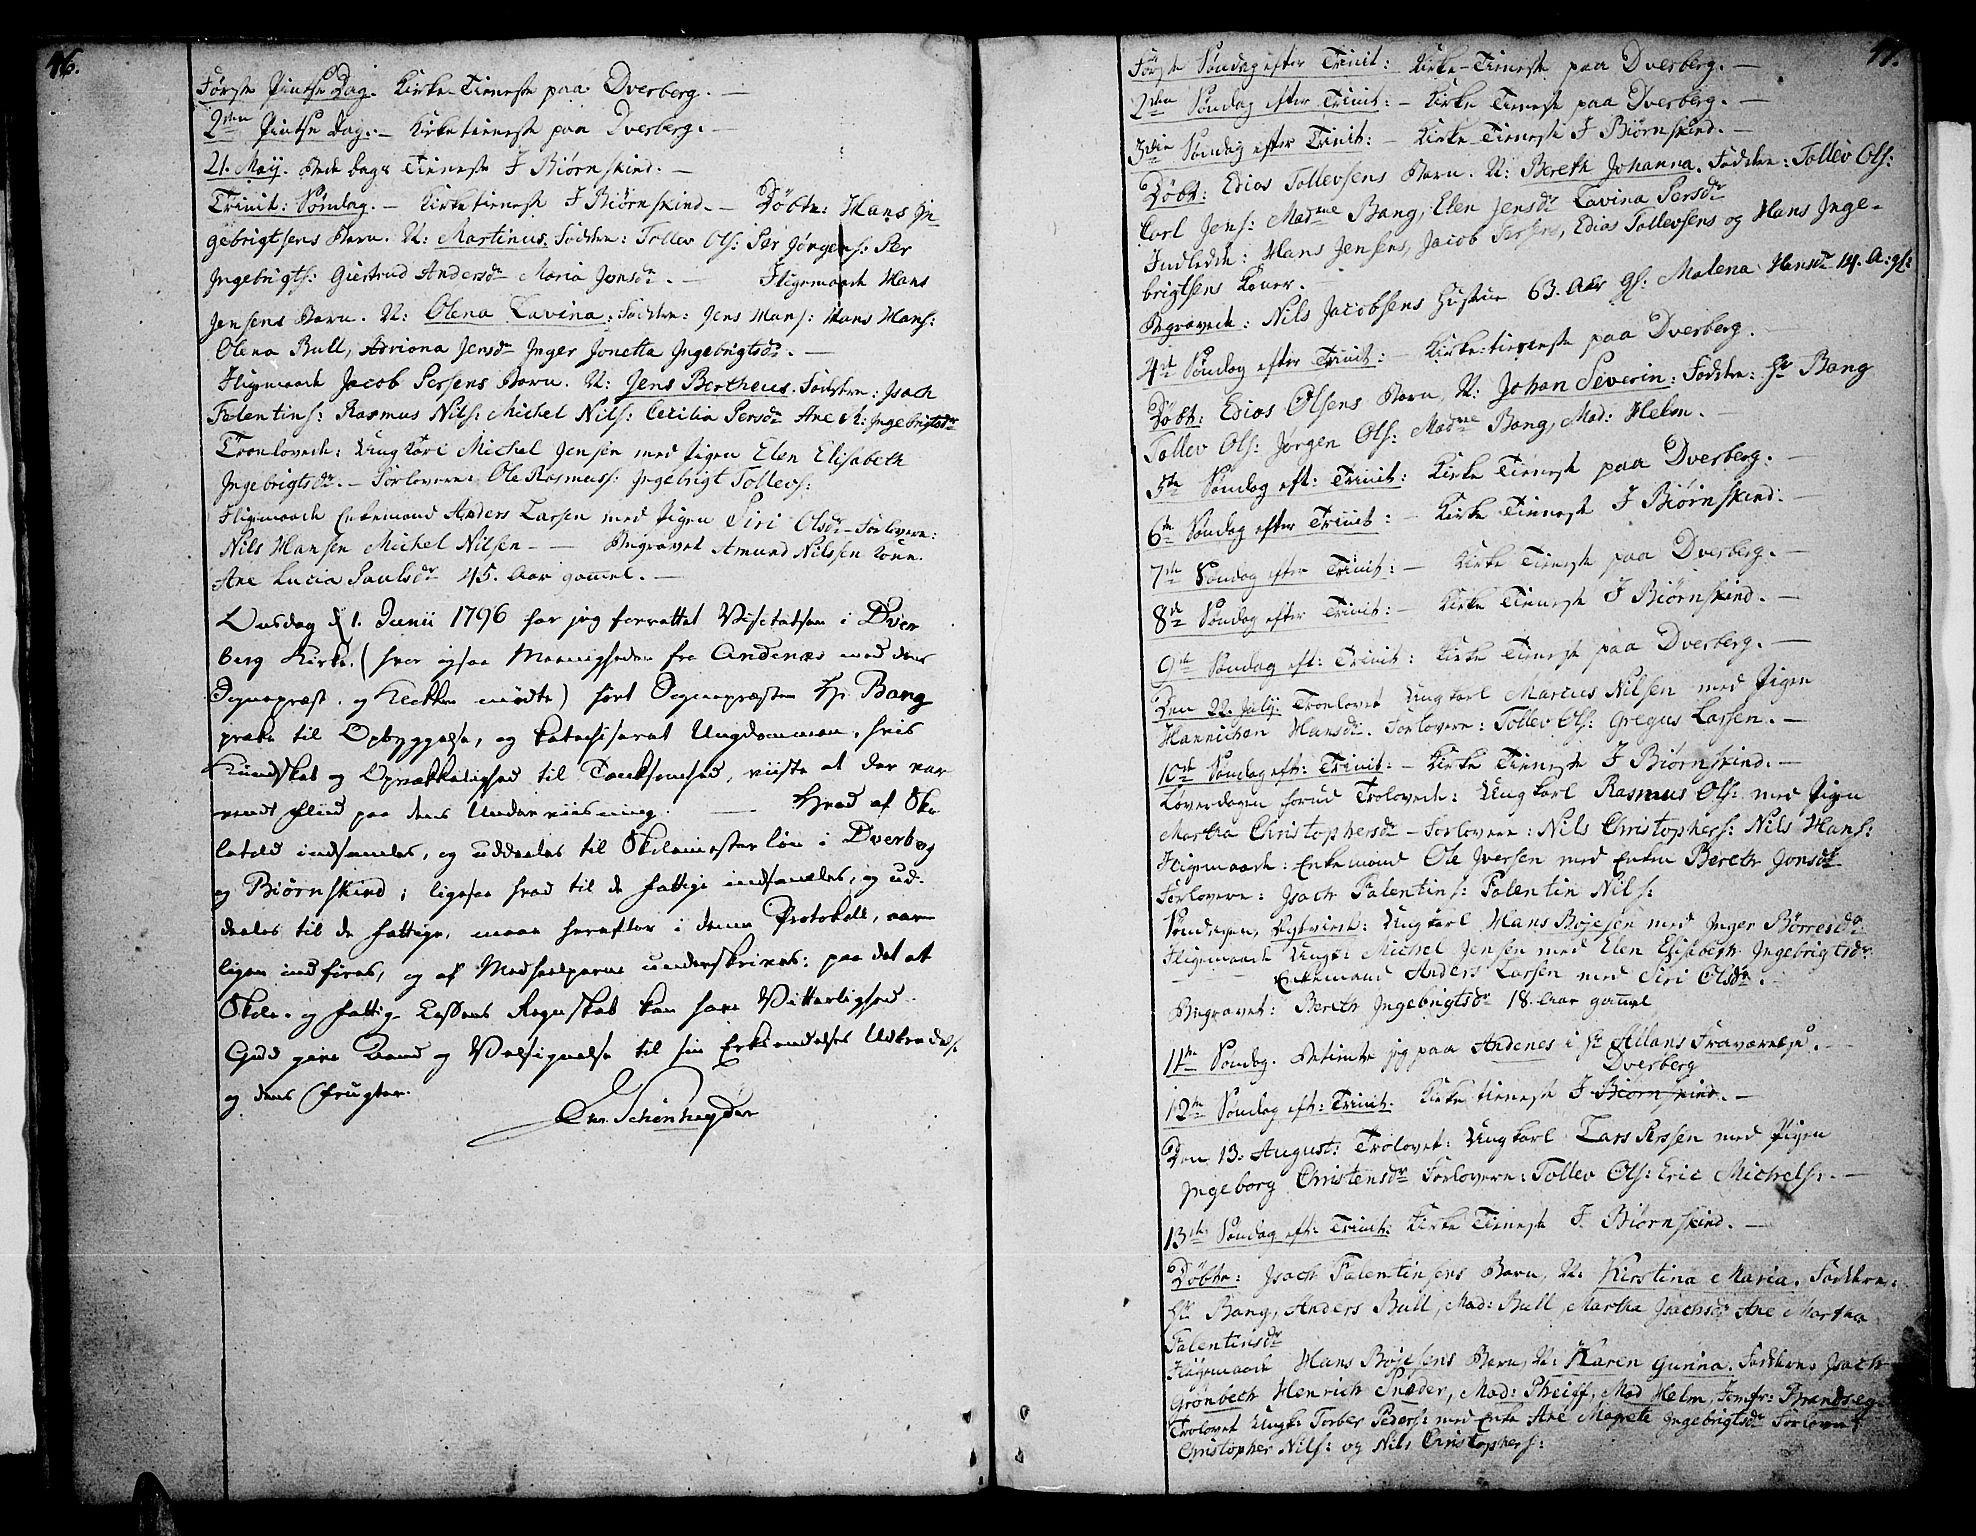 46.
Første Pintse Dag. Kirke-Tieneste paa Dverberg. —
2den Pintse Dag. — Kirketieneste paa Dverberg. —
21. Maij. Bede dags Tieneste I Biørnskind. —
Trinit: Søndag. — Kirketieneste I Biørnskind. — Døbte: Hans In
gebrigtsens Barn. N: Martinus. Fadderne: Tollev Ols: Per Jørgens: Per
Ingebrigts: Giertrud Andersdr Maria Jonsdr. — Iligemaade Hans
Jensens Barn. N: Olena Lavina. Faddere: Jens Hans: Hans Hans:
Olena Bull, Adriona Jensdr Inger Jonetta Ingebrigtsdr. —
Iligemaade Jacob Persens Barn. N: Jens Bertheus. Faddere: Isach
Falentins: Rasmus Nils: Michel Nils: Cecilia Persdr Ane M: Ingebrigtsdr
Troulovede: Ungkarl Michel Jensen med Pigen Elen Elisabeth
Ingebrigtsdr. — Forlovere: Ole Rasmuss: Ingebrigt Tollevs:
Iligemaade Enkemand Anders Larsen med Pigen Siri Olsdr — Forlovere:
Nils Hansen Michel Nilsen — — Begravet Amund Nilssen Kone
Ane Lucia Paulsdr 45. Aar gammel. —
Onsdag d. 1. Junii 1796 har jeg forrettet Visitatsen i Dver
berg Kirke. (hvor ogsaa Meenigheden fra Andenæs med dens
Sognepræst og Klokker mødte) hørt Sognepræsten Hr. Bang
præke til Opbyggelse, og katechiseret Ungdommen, hvis
Kundskab og Opvækkelighed til Tænksomhed, viiste at der var
vendt Fliid paa dens Underviisning. — Hvad af Sko
letold indsamles, og uddeeles til Skolemesterløn i Dverberg
og Biørnskind; ligesaa hvad til de Fattige indsamles, og ud-
deeles til de Fattige, maae herefter i denne Protokoll, aar-
ligen indføres, og af Medhielperne underskrives: paa det at
Skole- og Fattig-Cassens Regnskab kan have Vitterlighed.
Gud give Aand og Velsignelse til sin Erkiendelses Udbredelse
og dens Frugter.
Chr. Schønheyder
47.
Første Søndag efter Trinit: Kirke-Tieneste paa Dverberg. —
2den Søndag efter Trinit: — Kirke Tieneste paa Dverberg. —
3die Søndag efter Trinit: — Kirke-Tieneste I Biørnskind. —
Døbt: Edias Tollevsens Barn. N: Bereth Johanna. Faddere: Tollev Ols:
Carl Jens: Madme Bang, Elen Jensdr Lavina Persdr
Indledde: Hans Jensens, Jacob Persens, Edias Tollevsens og Hans Inge-
brigtsens Koner. —
Begravede: Nils Jacobsens Hustrue 63. Aar gl: Malena Hansdr 14. A: gl:
4de Søndag efter Trinit: — Kirke-tieneste paa Dverberg. —
Døbt: Edias Olsens Barn, N: Johan Severin: Faddere: Hr Bang
Tollev Ols: Jørgen Ols: Madme Bang, Mad: Helm. —
5te Søndag eft: Trinit: Kirke Tieneste paa Dverberg. —
6te Søndag efter Trinit: — Kirke Tieneste I Biørnskind. —
7de Søndag efter Trinit: — Kirke Tieneste paa Dverberg. —
8de Søndag efter Trinit: — Kirke Tieneste I Biørnskind. —
9de Søndag eft: Trinit: Kirke Tieneste paa Dverberg. —
Den 22. July. Troulovet Ungkarl Marcus Nilsen med Pigen
Hannichen Hansdr. Forlovere: Tollev Ols: Gregus Larsen. —
10de Søndag eft: Trinit: — Kirke Tieneste I Biørnskind. —
Løverdagen forud Trolovede: Ungkarl Rasmus Ols: med Pigen
Martha Christophersdr — Forlovere: Nils Christophers: Nils Hans:
Iligemaade: Enkemand Ole Iversen med Enken Bereth Jonsdr
Forlovere: Isach Falentins: Falentin Nils:
Søndagen, Egteviede: Ungkarl Hans Bøjesen med Inger Børresdr
Iligemaade Ungk: Michel Jensen med Elen Elisabeth Ingebrigtsdr
— Enkemand Anders Larsen med Siri Olsdr. —
Begravet: Bereth Ingebrigtsdr 18. Aar gammel
11te Søndag. Betiente jeg paa Andenes i Hr Allans Fraværelse. —
Dverberg
12te Søndag eft: Trinit. Kirke tieneste I Biørnskind. —
Den 13. August: Trolovet: Ungkarl Lars Persen med Pigen
Ingeborg Christensdr Forlovere: Tollev Ols: Eric Michels: —
13de Søndag eft: Trinit: Kirke Tieneste I Biørnskind. —
Døbte: Isach Falentinsens Barn, N: Kirstina Maria. Faddere:
Hr Bang, Anders Bull, Mad: Bull, Martha Isachsdr Ane Martha
Falentinsdr
Iligemaade Hans Bøjesens Barn, N: Karen Gurina. Faddere Isach
Grønbech Henrich Snæder, Mad: Pheiff, Mad Helm, Jomfr:
Trolovet Ungk: Torber Peders: med Enke Ane Magrete Ingebrigtsdr Forlovere:
Christopher Nils: og Nils Christophers: